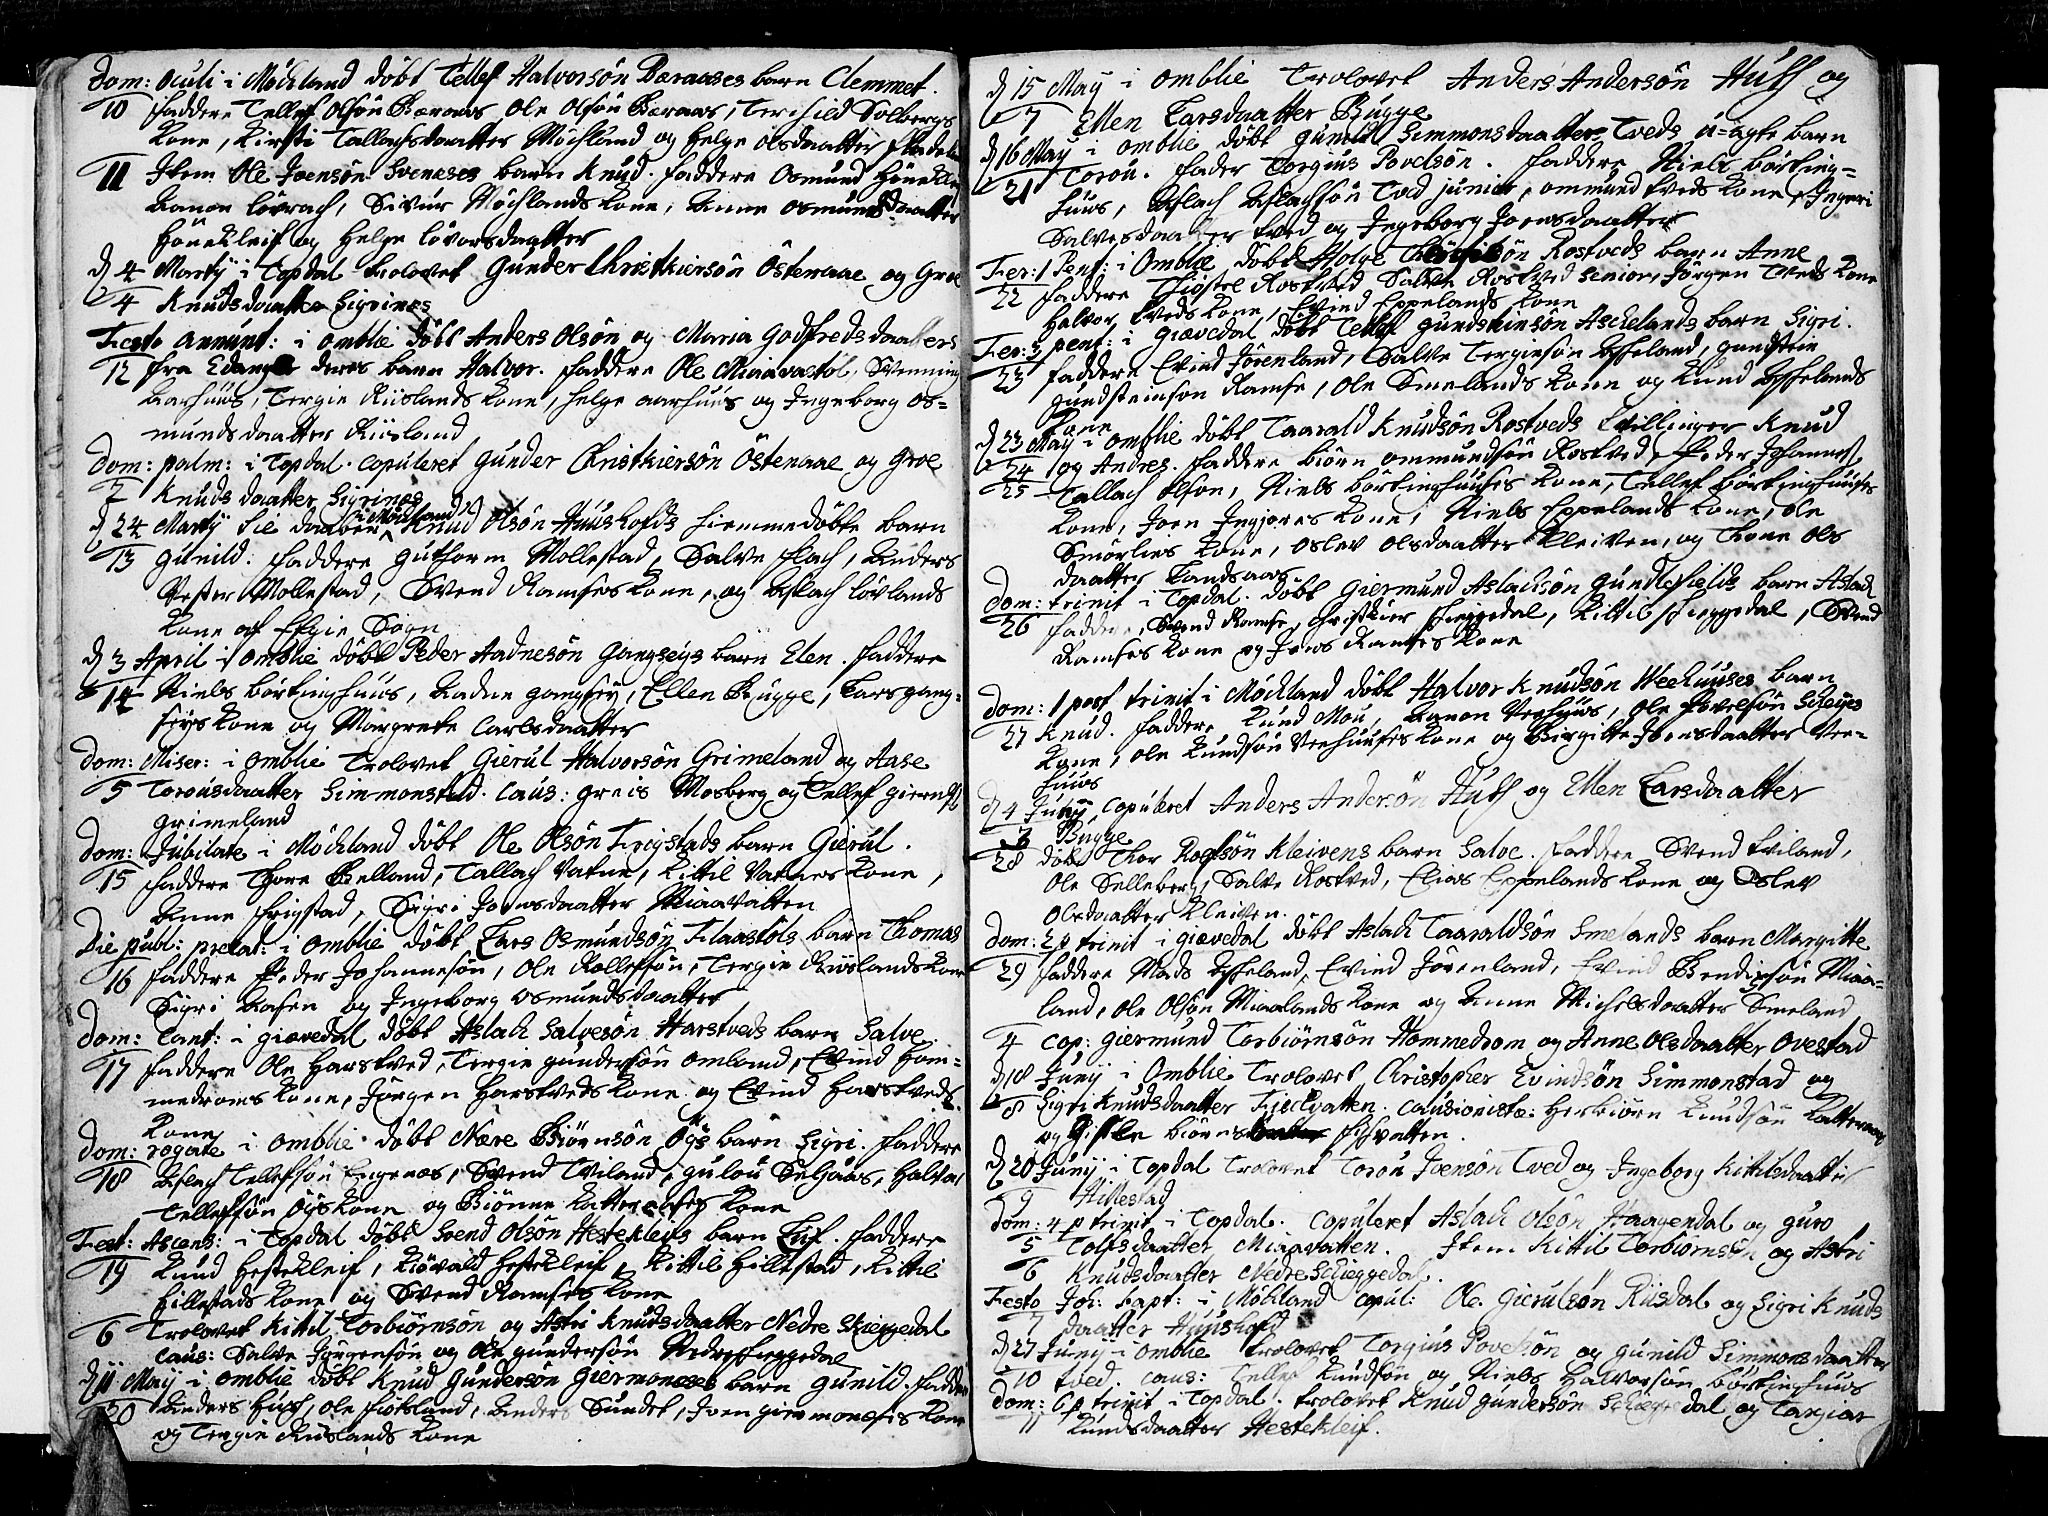 Dom: Oculi i Möckland döbt Tellef Halvorsön Beraases barn Clemmet.
10 faddere Tellef Olsön Beraas, Ole Olsön Beraas, Terchild Solbergs
Kone, Kirsti Tallachsdaatter Möckland og Helge Olsdaatter
11 Item Ole Joensön Sveneses barn Knud. faddere Osmund Hönekleif
Aanon Lövrach, Sivur Möcklands Kone, Anne Osmundsdaatter
Hönekleif og Helge Lövorsdaatter
d 4 Martij i Topdal trolovet Gunder Christkiersön Östenaae og Groe
4 Knudsdaatter Sigrines
Festo Annunt: i Omblie döbt Anders Olsön og Maria Godtfredsdaatters
12 fra Edange deres barn Halvor. faddere Ole Miaavastöl, Svennung
Aarhuus, Tergie Riislands Kone, Helge Aarhuus og Ingeborg Os=
mundsdaatter Riisland
Dom: palm: i Topdal copuleret Gunder Christkiersön Östenaae og Groe
7 Knudsdaatter Sigrines
d 24 Martij i Möckland Knud Olsön Huusholds hiemmedöbte barn
13 Gunild. faddere Guthorm Mollestad, Salve Flach, Anders
Vester Mollestad, Svend Ramses Kone, og Aslach Lövlands
Kone af Evie Sogn
d 3 April i Omblie döbt Peder Aadnesön Gangseys barn Elen. faddere
14 Niels börkinghuus, Aadne gangsey, Ellen Bugge, Lars gang=
seys Kone og Margrete Carlsdaatter
Dom: Miser: i Omblie Trolovet Gierul Halvorsön Grimeland og Aase
5 Torousdaatter Simmonstad. Caus: greis Mosberg og Tellef gieruls
grimeland
Dom: Jubilate i Möckland döbt Ole Olsön Frigstads barn Gierul.
15 faddere Thore Belland, Tallach Vatne, Kittil Vatnes Kone,
Anne Frigstad, Sigri Joensdaatter Miaavatten
Die publ: precat: i Omblie döbt Lars Osmundsön Flaastöls barn Thomas
16 faddere Peder Johannesön, Ole Rollefsön, Tergie Riislands Kone
Sigri Aasen og Ingeborg Osmundsdaatter
Dom: Cant: i giævedal döbt Aslach Salvesön Harstveds barn Salve
17 faddere Ole Harstved, Tergie gundersön Omland, Evind Hom=
medroms Kone, Jörgen Harstveds Kone og Evind Harstveds
Kone
Dom: rogate i Omblie döbt Nære Biörnsön Öys barn Sigri. faddere
18 Aslach Tellefsön Engenes, Svend Tviland, Gulou Seljaas, Halvor
Tellefsön Öys Kone og Biönne Kone
Fest: Ascens: i Topdal döbt Svend Olsön Hestekleifs barn Leif. faddere
19 Knud Hestekleif, Kiövald Hestekleif, Kittil Hillestad, Kittil
Hillestads Kone og Svend Ramses Kone
6 Trolovet Kittil Torbiörnsön og Astri Knudsdaatter Nedre Skieggedal
Caus: Salve Jörgensön og Ole gundersön Nedre skieggedal
d 11 Maij i Omblie döbt Knud Gundersön Giermoneses barn Gunild. faddere
20 Anders Huss, Ole fiskeland, Anders Sundet, Joen giermoneses Kone
og Tergie Riislands Kone
d 15 Maij i Omblie Trolovet Anders Andersön Huss og
7 Ellen Larsdaatter Bugge
d 16 Maij i Omblie döbt Gunild Simmonsdaatter Tveds u=ægte barn
21 Torou. fader Torgius Povelsön. faddere Niels börking=
huus, Aslach Aslachsön Tved junior, Ommund tveds Kone, Ingeri
Salvesdaatter tved og Ingeborg Joensdaatter
Fer: 1 Pent: i Omblie döbt Holge Rostveds barn Anne
22 faddere Rostved, Salve Rostved senior, Jörgen Tveds Kone
Halvor tveds Kone, Evind Eppelands Kone
Fer: 3 pent: i giævedal döbt Tellef Gundstensön Askelands barn Sigri.
23 faddere Evind Jörenland, Salve Tergiesön Askeland, gundstein
gundsteinson Ramse, Ole Smelands Kone og Knud Askelands
Kone
d 23 Maij i Omblie döbt Taarald Knudsön Rostveds tvillinger Knud
24 og Andres. faddere biörn ommundsön Rostved, Peder Johannes,
25 Tallach Olson, Niels börkinghuuses Kone, Tellef börkinghuuses
Kone, Joen Ingjores Kone, Niels Eppelands Kone, Ole
Smörlies Kone, Oslev Olsdaatter Kleiven, og Thone Ols
daatter Landsaas
Dom: trinit i Topdal. döbt Giermund Aslachsön barn Aslach
26 faddere, Svend Ramse, Christkier skieggedal, Kittil skieggedal, Svend
Ramses Kone og Jens Ramses Kone
Dom: 1 post trinit i Möckland döbt Halvor Knudsön Weehuuses barn
27 Knud. faddere Knud Mou, Aanon Veehuus, Ole Povelsön
Kone, Ole Knudsön Veehuuses Kone og Birgitte Joensdaatter Vee=
huus
d 4 Junij copuleret Anders Andersön Huss og Ellen Larsdaatter
3 Bugge
28 döbt Thor Roefsön Kleivens barn Salve. faddere Svend tviland,
Ole Selleberg, Salve Rostved, Elias Eppelands Kone og Oslev
Olsdaatter Kleiven.
Dom: 2 p trinit i giævedal döbt Aslach Taaraldsön Smelands barn Margitte
29 faddere Mads Askeland, Evind Jörenland, Evind Bendixsön Miaa=
land, Ole Olsön Miaalands Kone og Anne Michelsdaatter Smeland
4 cop: giermund Torbiörnsön Hommedrom og Anne Olsdaatter Ovestad
d 18 Junij i Omblie Trolovet Christopher Evindsön Simmonstad og
8 Sigri Knudsdaatter Fischvatten. Causionistæ: Herbiörn Knudsön
og Gisle biörns fishvatten.
d 20 Junij i Topdal Trolovet Torou Joensön Tved og Ingeborg Kittilsdaatter
9 Hillestad
Dom: 4 p trinit i Topdal. Copuleret Aslach Olsön Haagendal og guro
5 Tolfsdaatter Miaavatten. Item Kittil Torbiörnsön og Astri
6 Knudsdaatter Nedre Schieggedal.
Festo Joh: bapt: i Möckland copul: Ole Gierulsön Riisdal og Sigri Knuds
7 daatter Huushold
d 27 Junij i Omblie trolovet Torgius Povelsön og Gunild Simmonsdaatter
10 tved. caus: Tellef Knudsön og Niels Halvorson börkinghuus
Dom: 6 p trinit i Topdal. trolovet Knud Gundersön Schieggedal og Torgier
11 Knudsdaatter Hestekleif.